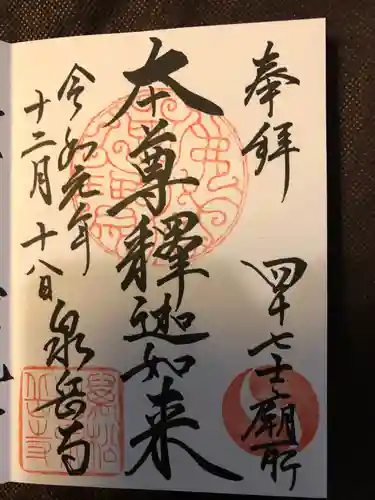 奉拝
四十七士廟所
本尊釋迦如来
令和元年
十二月十八日
泉岳寺